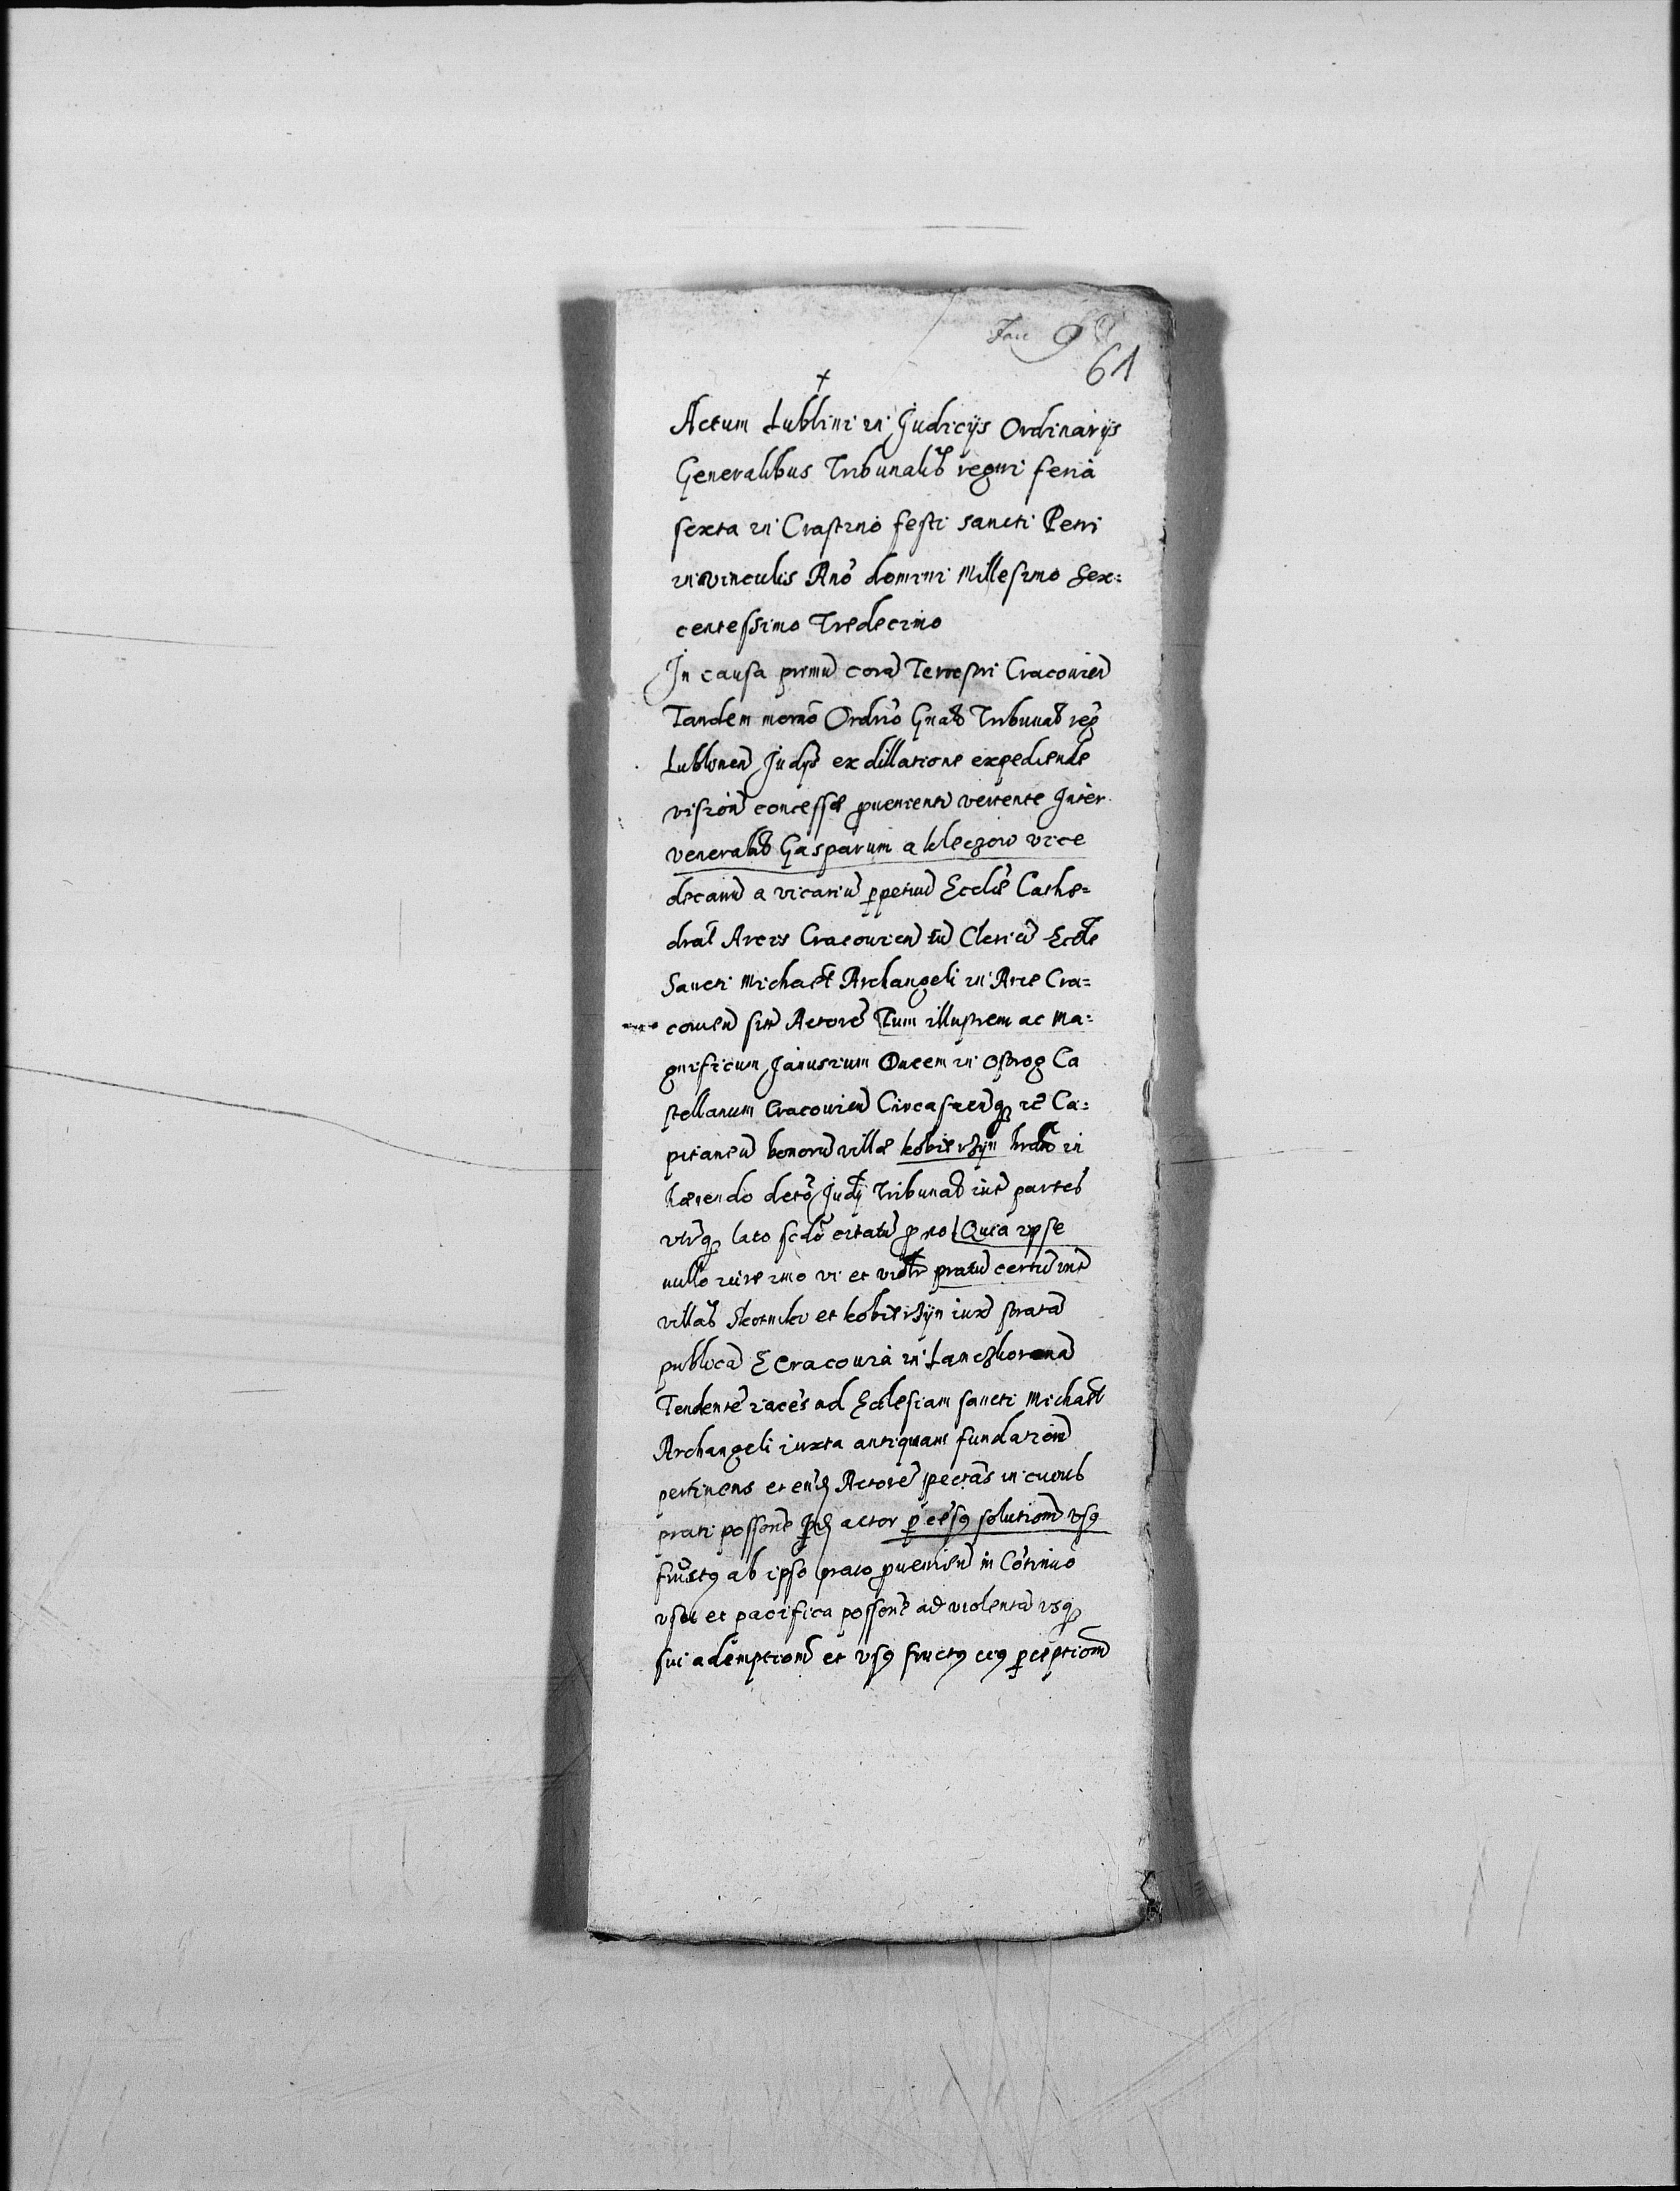 9
61
Actum Lublini in Judicijs Ordinarijs
Generalibus Tribunalib regni feria
sexta in Crastino festi sancti Petri
in vinculis Ano domini Millesimo Sex=
centessimo Tredecimo
In causa primu cora Terrestri Cracovien
Tandem Ordrio Gnalb Tribunalb reg
Lublinen Judys ex dillatione expediende
vision concessæ pvenienti vertente Inter
venerabilb Gasparum a Kleczow vice
decanu a vicariu ppetuu Ecclie Cathe=
dral Arcis Cracovien tu Clericu Eccle
Sancti Michael Archangeli in Arce Cra=
covien Actore Tum illustrem ac Ma=
gnificum Janusium Ducem in Ostrog Ca
stellanum Cracovien re Ca=
pitaneu bonoru villæ Kobierzyn in
hærendo Judy Tribunal int partes
vtrq lato citatu p eo Quia ipse
nullo iure imo vi et violtr pratu certu int
villas Skotniki et Kobierzyn iux strata
publica E Cracovia in Lanczkorona
Tendente iaces ad Ecclesiam sancti Michael
Archangeli iuxta antiquam fundation
pertinens et Actore spectas in cuius
prati possone actor p solutiom vsq
fructq ab ipso prato pvenien in Cotinuo
vsu et pacifica possone ad violenta vsq
sui ademptiom et vsq fructq pceptiom